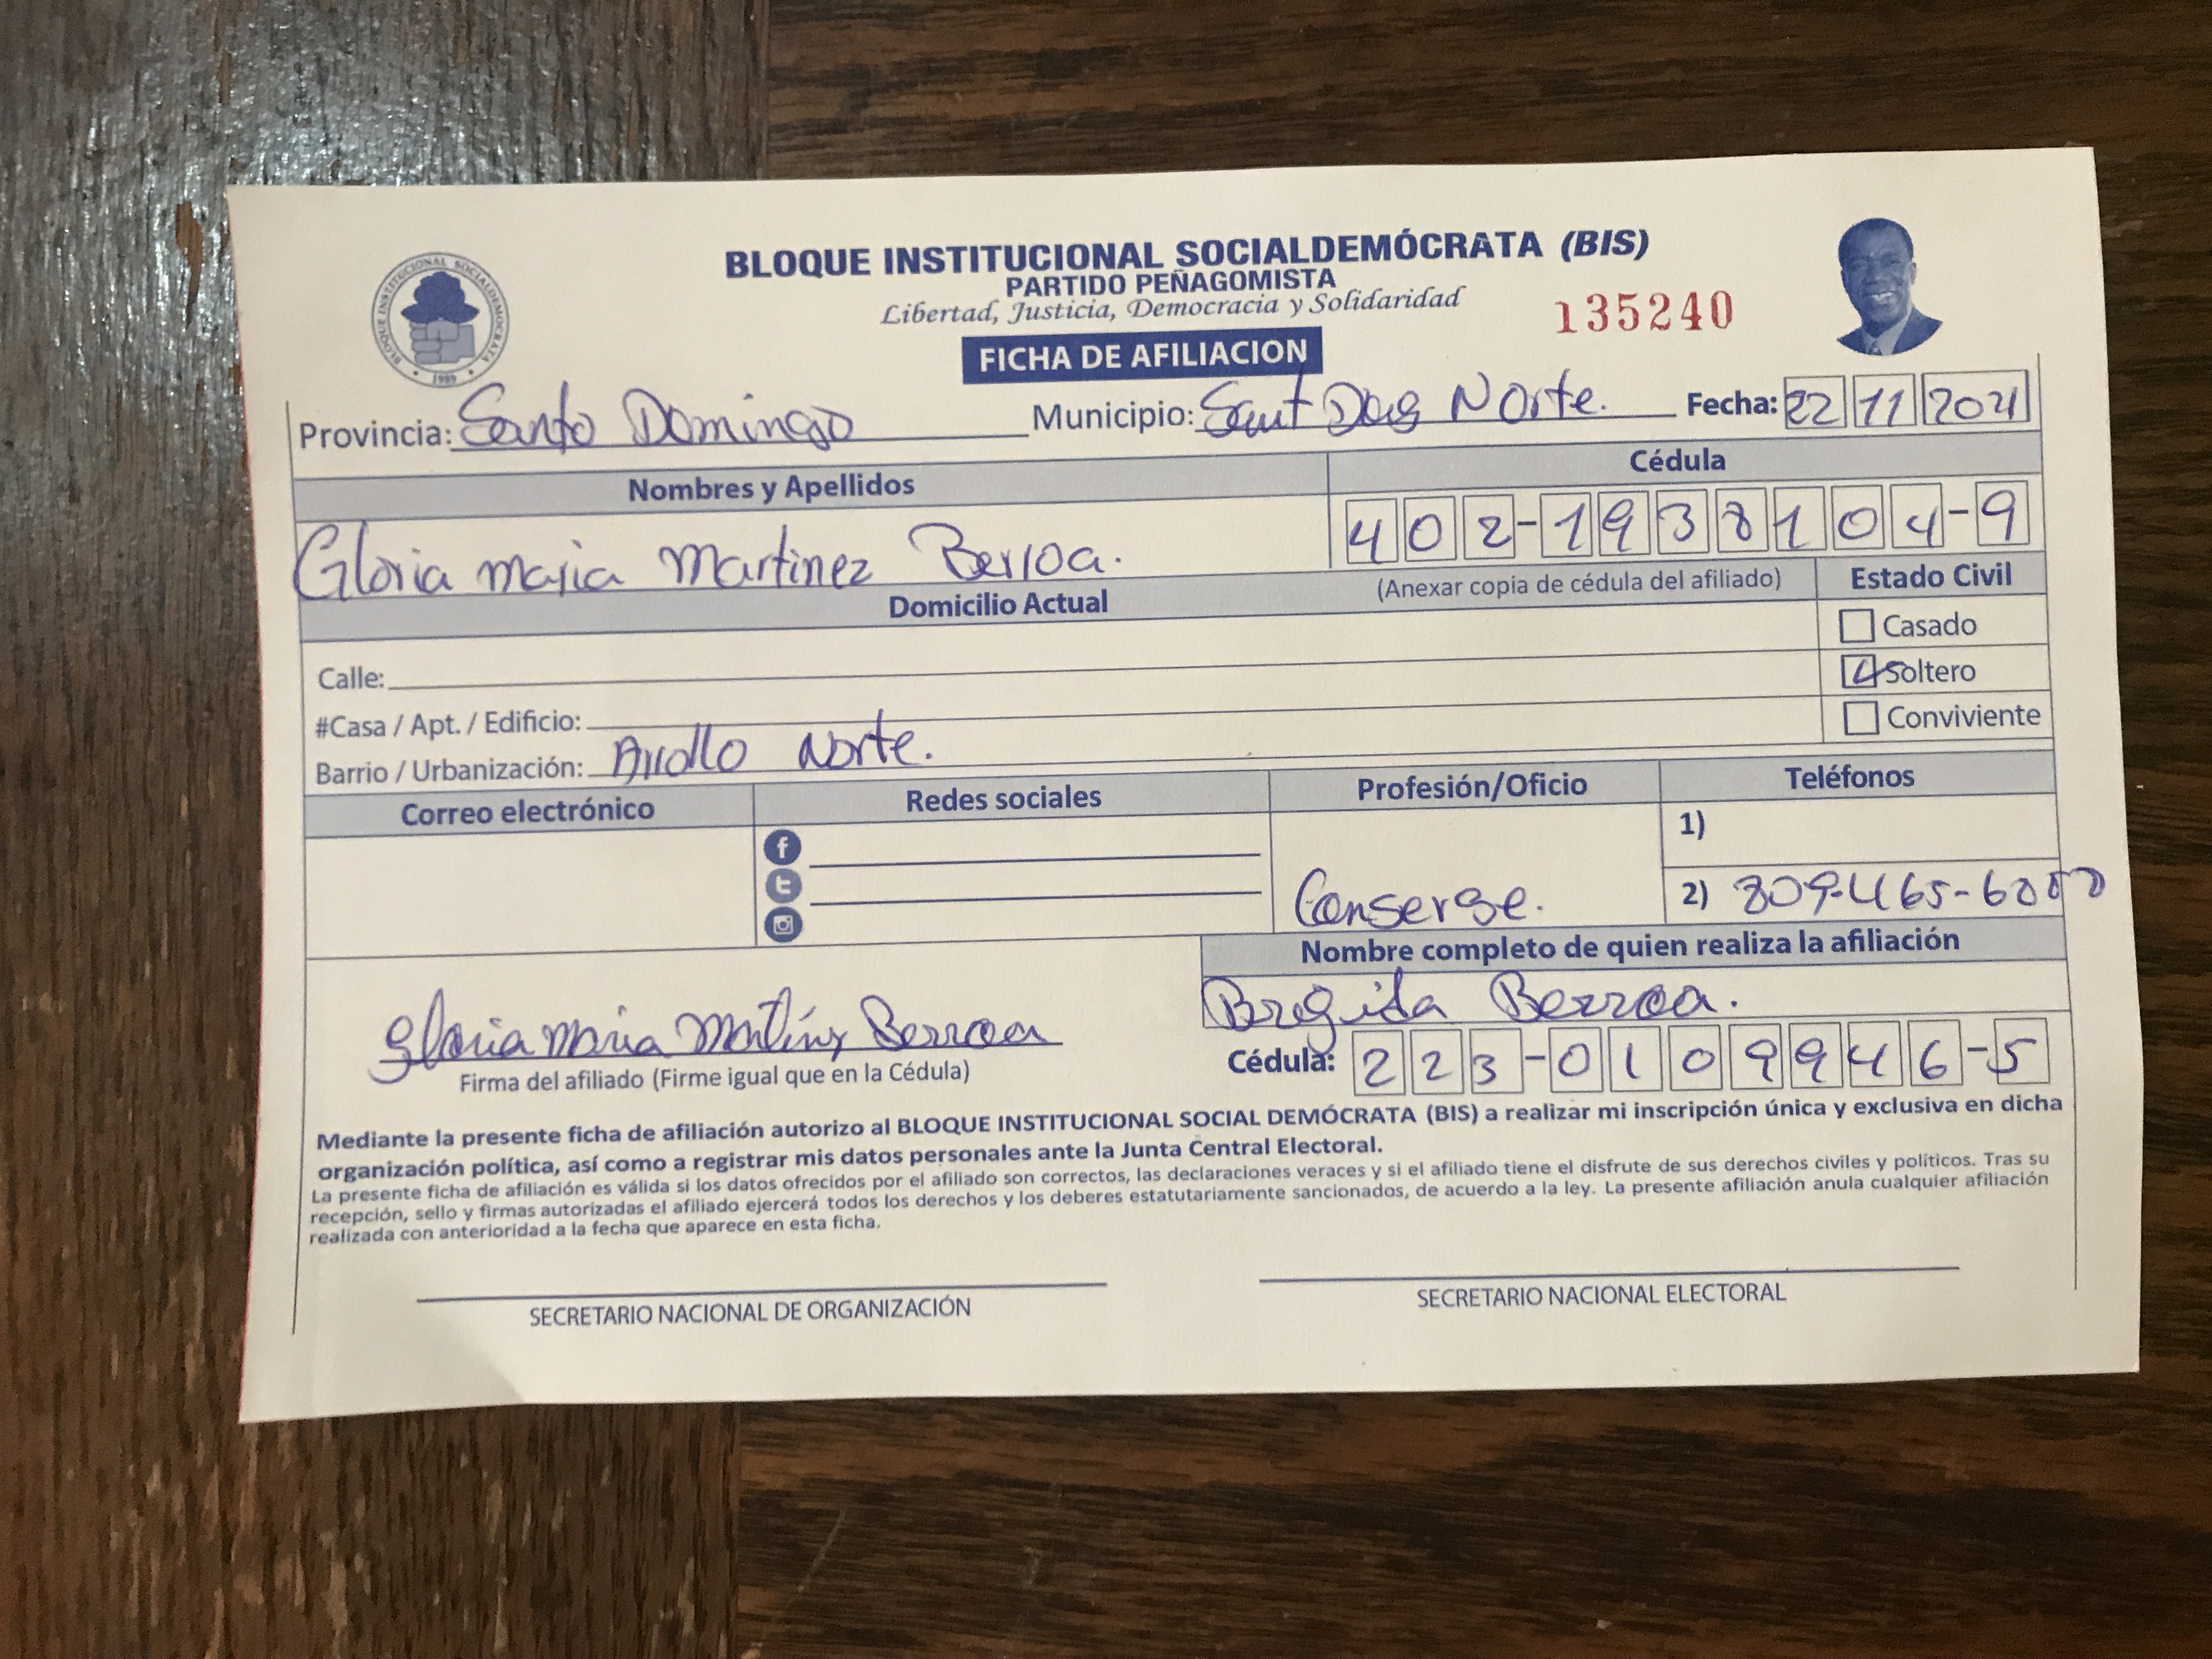 BLOQUE INSTITUCIONAL SOCIALDEMÓCRATA (BIS)
PARTIDO PEÑAGOMISTA
Libertad, Justicia, Democracia y Solidaridad
135240
BLOQUE INSTITUCIONAL SOCIALDEMOCRATA
1989
FICHA DE AFILIACION
Provincia: Santo Domingo Municipio: Norte. Fecha: 22 11 2021
Nombres y Apellidos Cédula
Gloria maria Martinez Berroa. 402-1938104-9
Domicilio Actual (Anexar copia de cédula del afiliado) Estado Civil
Casado
Calle: Soltero
#Casa / Apt. / Edificio: Conviviente
Barrio / Urbanización: Norte.
Correo electrónico Redes sociales Profesión/Oficio Teléfonos
1)
Conserge. 2) 809-465-6000
Nombre completo de quien realiza la afiliación
Brigida Berroa.
Gloria Maria Martínez Berroa
Cédula: 223-0109946-5
Firma del afiliado (Firme igual que en la Cédula)
Mediante la presente ficha de afiliación autorizo al BLOQUE INSTITUCIONAL SOCIAL DEMÓCRATA (BIS) a realizar mi inscripción única y exclusiva en dicha
organización política, así como a registrar mis datos personales ante la Junta Central Electoral.
La presente ficha de afiliación es válida si los datos ofrecidos por el afiliado son correctos, las declaraciones veraces y si el afiliado tiene el disfrute de sus derechos civiles y políticos. Tras su
recepción, sello y firmas autorizadas el afiliado ejercerá todos los derechos y los deberes estatutariamente sancionados, de acuerdo a la ley. La presente afiliación anula cualquier afiliación
realizada con anterioridad a la fecha que aparece en esta ficha.
SECRETARIO NACIONAL DE ORGANIZACIÓN SECRETARIO NACIONAL ELECTORAL